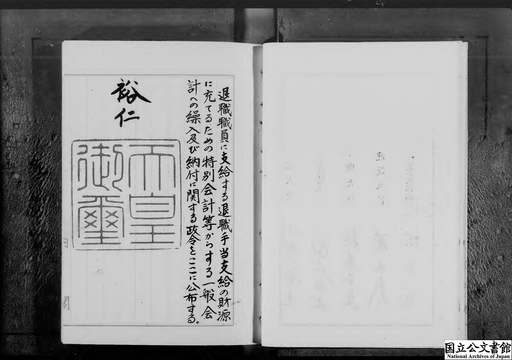 退職職員に支給する退職手当支給の財源
に充てるための特別会計等からする一般会
計への繰入及び納付に関する政令をここに公布する。
裕仁
天皇
御璽
国立公文書館
National Archives of Japan